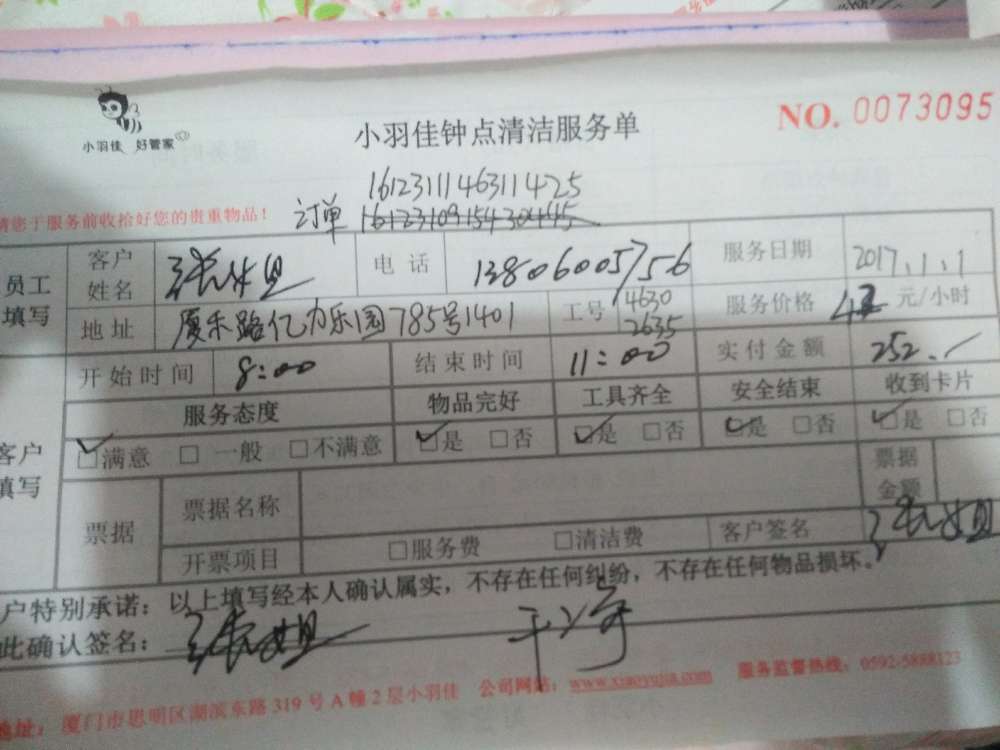 小羽佳 好管家
小羽佳钟点清洁服务单
NO. 0073095
请您于服务前收拾好您的贵重物品!
订单 161231114631 1425
161231091543 04445
员工填写 客户姓名 张姐 电话 13806005756 服务日期 2017.1.1
地址 厦禾路亿力乐园785号1401 工号 4630 2635 服务价格 42 元/小时
开始时间 8:00 结束时间 11:00 实付金额 252.
服务态度 物品完好 工具齐全 安全结束 收到卡片
客户填写 满意 一般 不满意 是 否 是 否 是 否 是 否
票据 票据名称 票据金额
开票项目 服务费 清洁费 客户签名 张姐
户特别承诺：以上填写经本人确认属实，不存在任何纠纷，不存在任何物品损坏。
此确认签名： 张姐
地址：厦门市思明区湖滨东路319号A幢2层小羽佳 公司网站：www.xiaoyujia.com 服务监督热线：0592-5888123